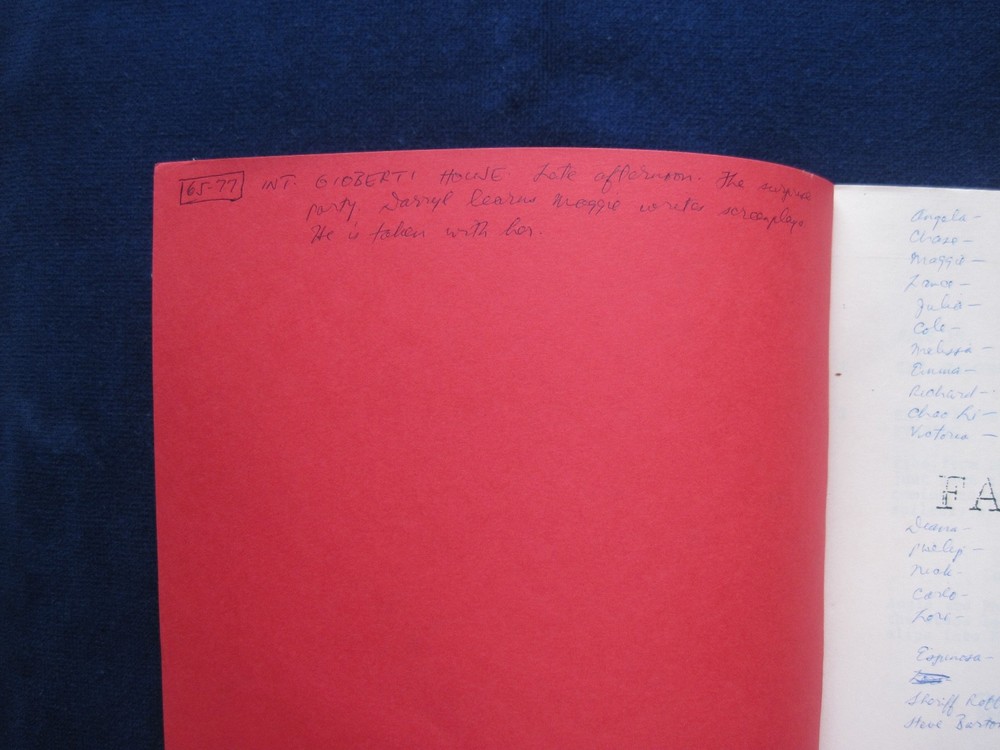 65-77 INT. GIOBERTI HOUSE Late afternoon. The surprise
party. Darryl learns Maggie writes screenplays
He is taken with her.
Angela-
Chase-
Maggie-
Lance-
Julia-
Cole-
Melissa-
Emma-
Richard-
Chao Li-
Victoria-
FA
Diana-
Philip-
Nick-
Carlo-
Lori-
Espinosa-
Sheriff Rob
Steve Barton